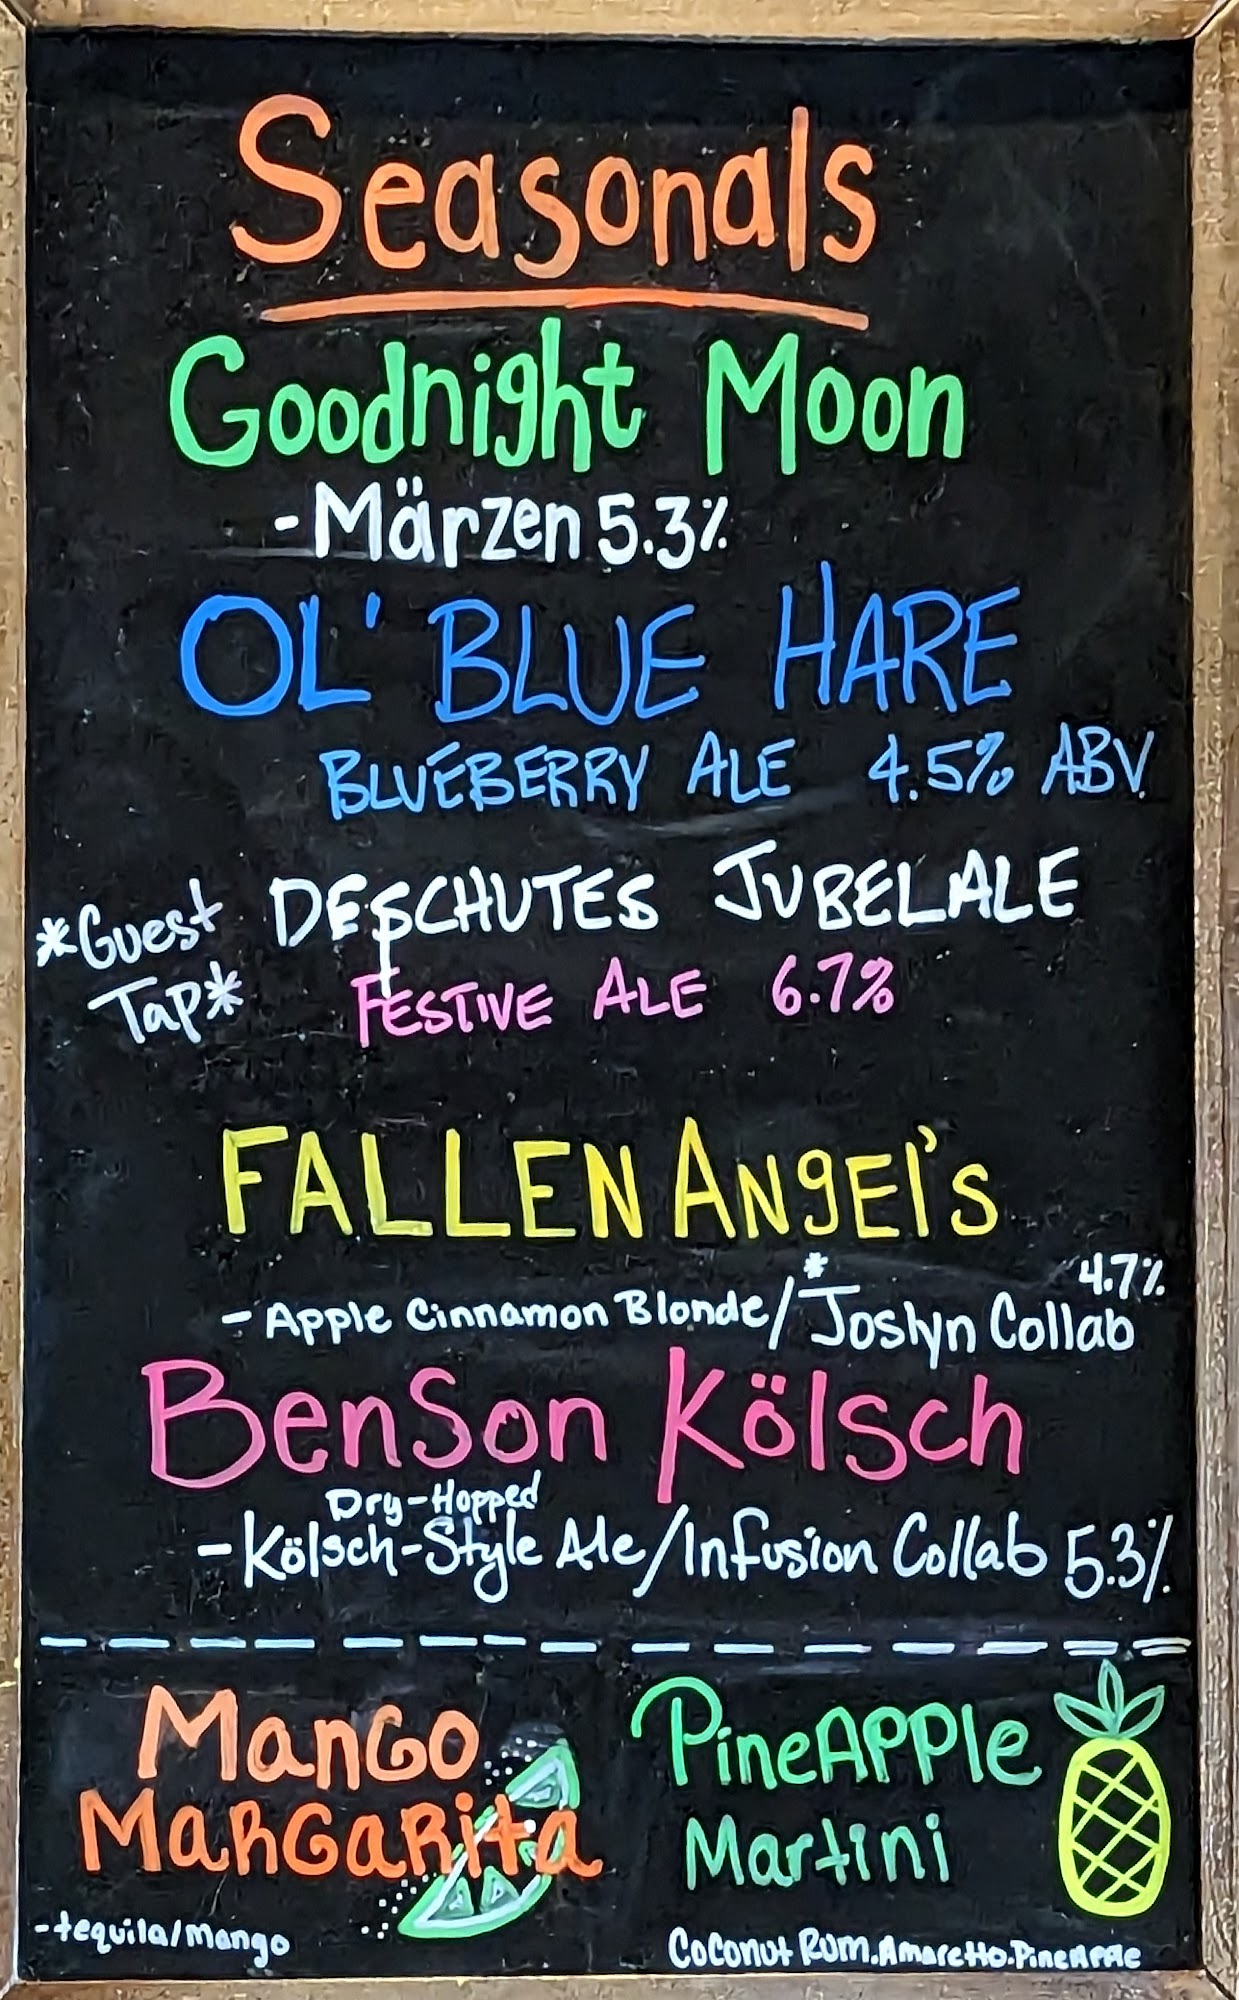 Seasonals
Goodnight Moon
-Märzen 5.3%
OL' BLUE HARE
BLUEBERRY ALE 4.5% ABV.
*Guest Tap* DESCHUTES JUBELALE
FESTIVE ALE 6.7%
FALLEN ANgEl's
- Apple Cinnamon Blonde/*Joslyn Collab 4.7%
BenSon Kölsch
- Dry-Hopped Kölsch-Style Ale/Infusion Collab 5.3%
MANGO
MARGARITA
-tequila/Mango
PineAPPle
Martini
COCONUT RUM.Amaretto.PineAPPle